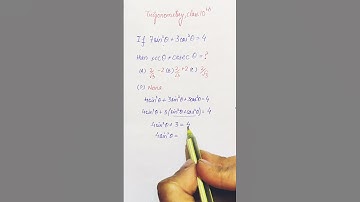 Trigonometry class 10th
If 7sin²θ + 3cos²θ = 4
then secθ + cosecθ = ?
(a) 2/√3 - 2 (b) 2/√3 + 2 (c) 2/√3
(d) None
4sin²θ + 3sin²θ + 3cos²θ = 4
4sin²θ + 3(sin²θ + cos²θ) = 4
4sin²θ + 3 = 4
4sin²θ =